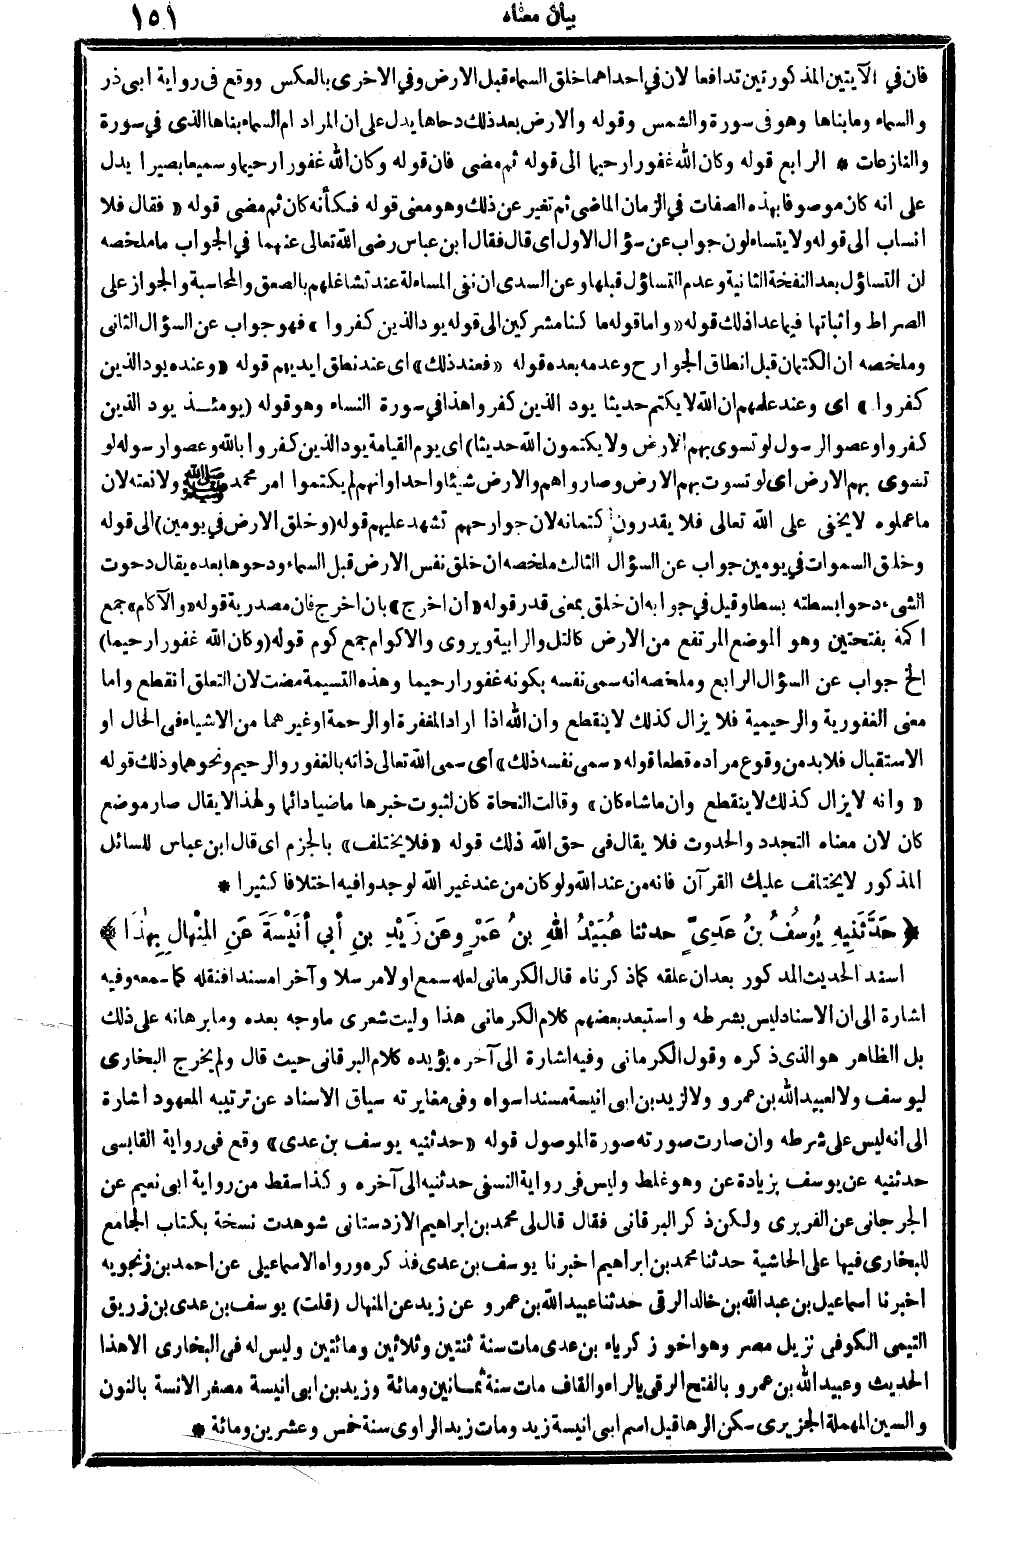 بيان معناه ١٥١
فان في الآيتين المذكورتين تدافعا لان في احداهما خلق السماء قبل الارض وفي الاخرى بالعكس ووقع فى رواية ابى ذر
والسماء وما بناها وهو فى سورة والشمس وقوله والارض بعد ذلك دحاها يدل على ان المراد ام السماء بناها الذى في سورة
والنازعات * الرابع قوله وكان الله غفورا رحيما الى قوله ثم مضى فان قوله وكان الله غفورا رحيما وسميعا بصيرا يدل
على انه كان موصوفا بهذه الصفات في الزمان الماضى ثم تغير عن ذلك وهو معنى قوله فكأنه كان ثم مضى قوله « فقال فلا
انساب الى قوله ولا يتساءلون جواب عن سؤال الاول اى قال فقال ابن عباس رضى الله تعالى عنهما في الجواب ما ملخصه
ان التساؤل بعد النفخة الثانية وعدم التساؤل قبلها وعن السدى ان نفى المساءلة عند تشاغلهم بالصعق والمحاسبة والجواز على
الصراط واثباتها فيما عدا ذلك قوله « واما قوله ما كنا مشركين الى قوله يود الذين كفروا » فهو جواب عن السؤال الثانى
وملخصه ان الكتمان قبل انطاق الجوارح وعدمه بعده قوله «فعند ذلك» اى عند نطق ايديهم قوله «وعنده يود الذين
كفروا » اى وعند علمهم ان الله لا يكتم حديثا يود الذين كفروا هذا في سورة النساء وهو قوله (يومئذ يود الذين
كفروا وعصوا الرسول لو تسوى بهم الارض ولا يكتمون الله حديثا) اى يوم القيامة يود الذين كفروا بالله وعصوا رسوله لو
تسوى بهم الارض اى لو تسوت بهم الارض وصاروا هم والارض شيئا واحدا وانهم لم يكتموا امر محمد ﷺ ولا نعته لان
ما عملوه لا يخفى على الله تعالى فلا يقدرون كتمانه لان جوارحهم تشهد عليهم قوله (وخلق الارض في يومين) الى قوله
وخلق السموات في يومين جواب عن السؤال الثالث ملخصه ان خلق نفس الارض قبل السماء ودحوها بعده يقال دحوت
الشىء دحوا بسطته بسطا وقيل في جوابه ان خلق بمعنى قدر قوله «ان اخرج» بان اخرج فان مصدرية قوله «والآكام» جمع
اكمة بفتحتين وهو الموضع المرتفع من الارض كالتل والرابية ويروى والاكوام جمع كوم قوله (وكان الله غفورا رحيما)
الخ جواب عن السؤال الرابع وملخصه انه سمى نفسه بكونه غفورا رحيما وهذه التسمية مضت لان التعلق انقطع واما
معنى الغفورية والرحيمية فلا يزال كذلك لا ينقطع وان الله اذا اراد المغفرة او الرحمة او غيرهما من الاشياء فى الحال او
الاستقبال فلا بد من وقوع مراده قطعا قوله «سمى نفسه ذلك» أى سمى الله تعالى ذاته بالغفور والرحيم ونحوهما وذلك قوله
« وانه لا يزال كذلك لا ينقطع وان ما شاء كان» وقالت النحاة كان لثبوت خبرها ماضيا دائما ولهذا لا يقال صار موضع
كان لان معناه التجدد والحدوث فلا يقال فى حق الله ذلك قوله «فلا يختلف» بالجزم اى قال ابن عباس للسائل
المذكور لا يختلف عليك القرآن فانه من عند الله ولو كان من عند غير الله لوجدوا فيه اختلافا كثيرا *
﴿ حَدَّثَنِيهِ يُوسُفُ بْنُ عَدِىٍّ حدثنا عُبَيْدُ اللهِ بنُ عَمْرٍو عن زَيْدِ بنِ أبي أُنَيْسَةَ عَنِ المِنْهالِ بِهٰذَا ﴾
اسند الحديث المذكور بعد ان علقه كما ذكرناه قال الكرمانى لعله سمع اولا مرسلا وآخرا مسندا فنقله كما سمعه وفيه
اشارة الى ان الاسناد ليس بشرطه واستبعد بعضهم كلام الكرمانى هذا وليت شعرى ما وجه بعده وما برهانه على ذلك
بل الظاهر هو الذى ذكره وقول الكرمانى وفيه اشارة الى آخره يؤيده كلام البرقانى حيث قال ولم يخرج البخارى
ليوسف ولا لعبيد الله بن عمرو ولا لزيد بن ابى انيسة مسندا سواه وفى مغايرته سياق الاسناد عن ترتيبه المعهود اشارة
الى انه ليس على شرطه وان صارت صورته صورة الموصول قوله «حدثنيه يوسف بن عدى» وقع فى رواية القابسى
حدثنيه عن يوسف بزيادة عن وهو غلط وليس فى رواية النسفى حدثنيه الى آخره وكذا سقط من رواية ابى نعيم عن
الجرجانى عن الفربرى ولكن ذكر البرقانى فقال قال لى محمد بن ابراهيم الازدستانى شوهدت نسخة بكتاب الجامع
للبخارى فيها على الحاشية حدثنا محمد بن ابراهيم اخبرنا يوسف بن عدى فذكره ورواه الاسماعيلى عن احمد بن زنجويه
اخبرنا اسماعيل بن عبد الله بن خالد الرقى حدثنا عبيد الله بن عمرو عن زيد عن المنهال (قلت) يوسف بن عدى بن زريق
التيمى الكوفى نزيل مصر وهو اخو زكرياء بن عدى مات سنة ثنتين وثلاثين ومائتين وليس له فى البخارى الا هذا
الحديث وعبيد الله بن عمرو بالفتح الرقى بالراء والقاف مات سنة ثمانين ومائة وزيد بن ابى انيسة مصغر الانسة بالنون
والسين المهملة الجزيرى سكن الرها قيل اسم ابى انيسة زيد ومات زيد الراوى سنة خمس وعشرين ومائة *